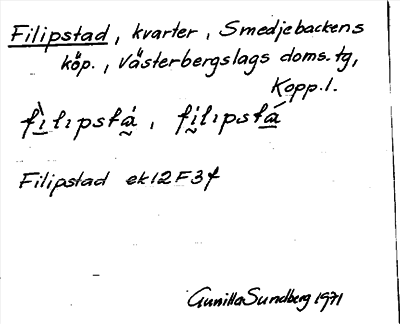 Filipstad, kvarter, Smedjebackens
köp., Västerbergslags doms.tg,
Kopp.l.
fìlɩpstá, filɩpstá
Filipstad ek12F3f
Gunilla Sundberg 1971